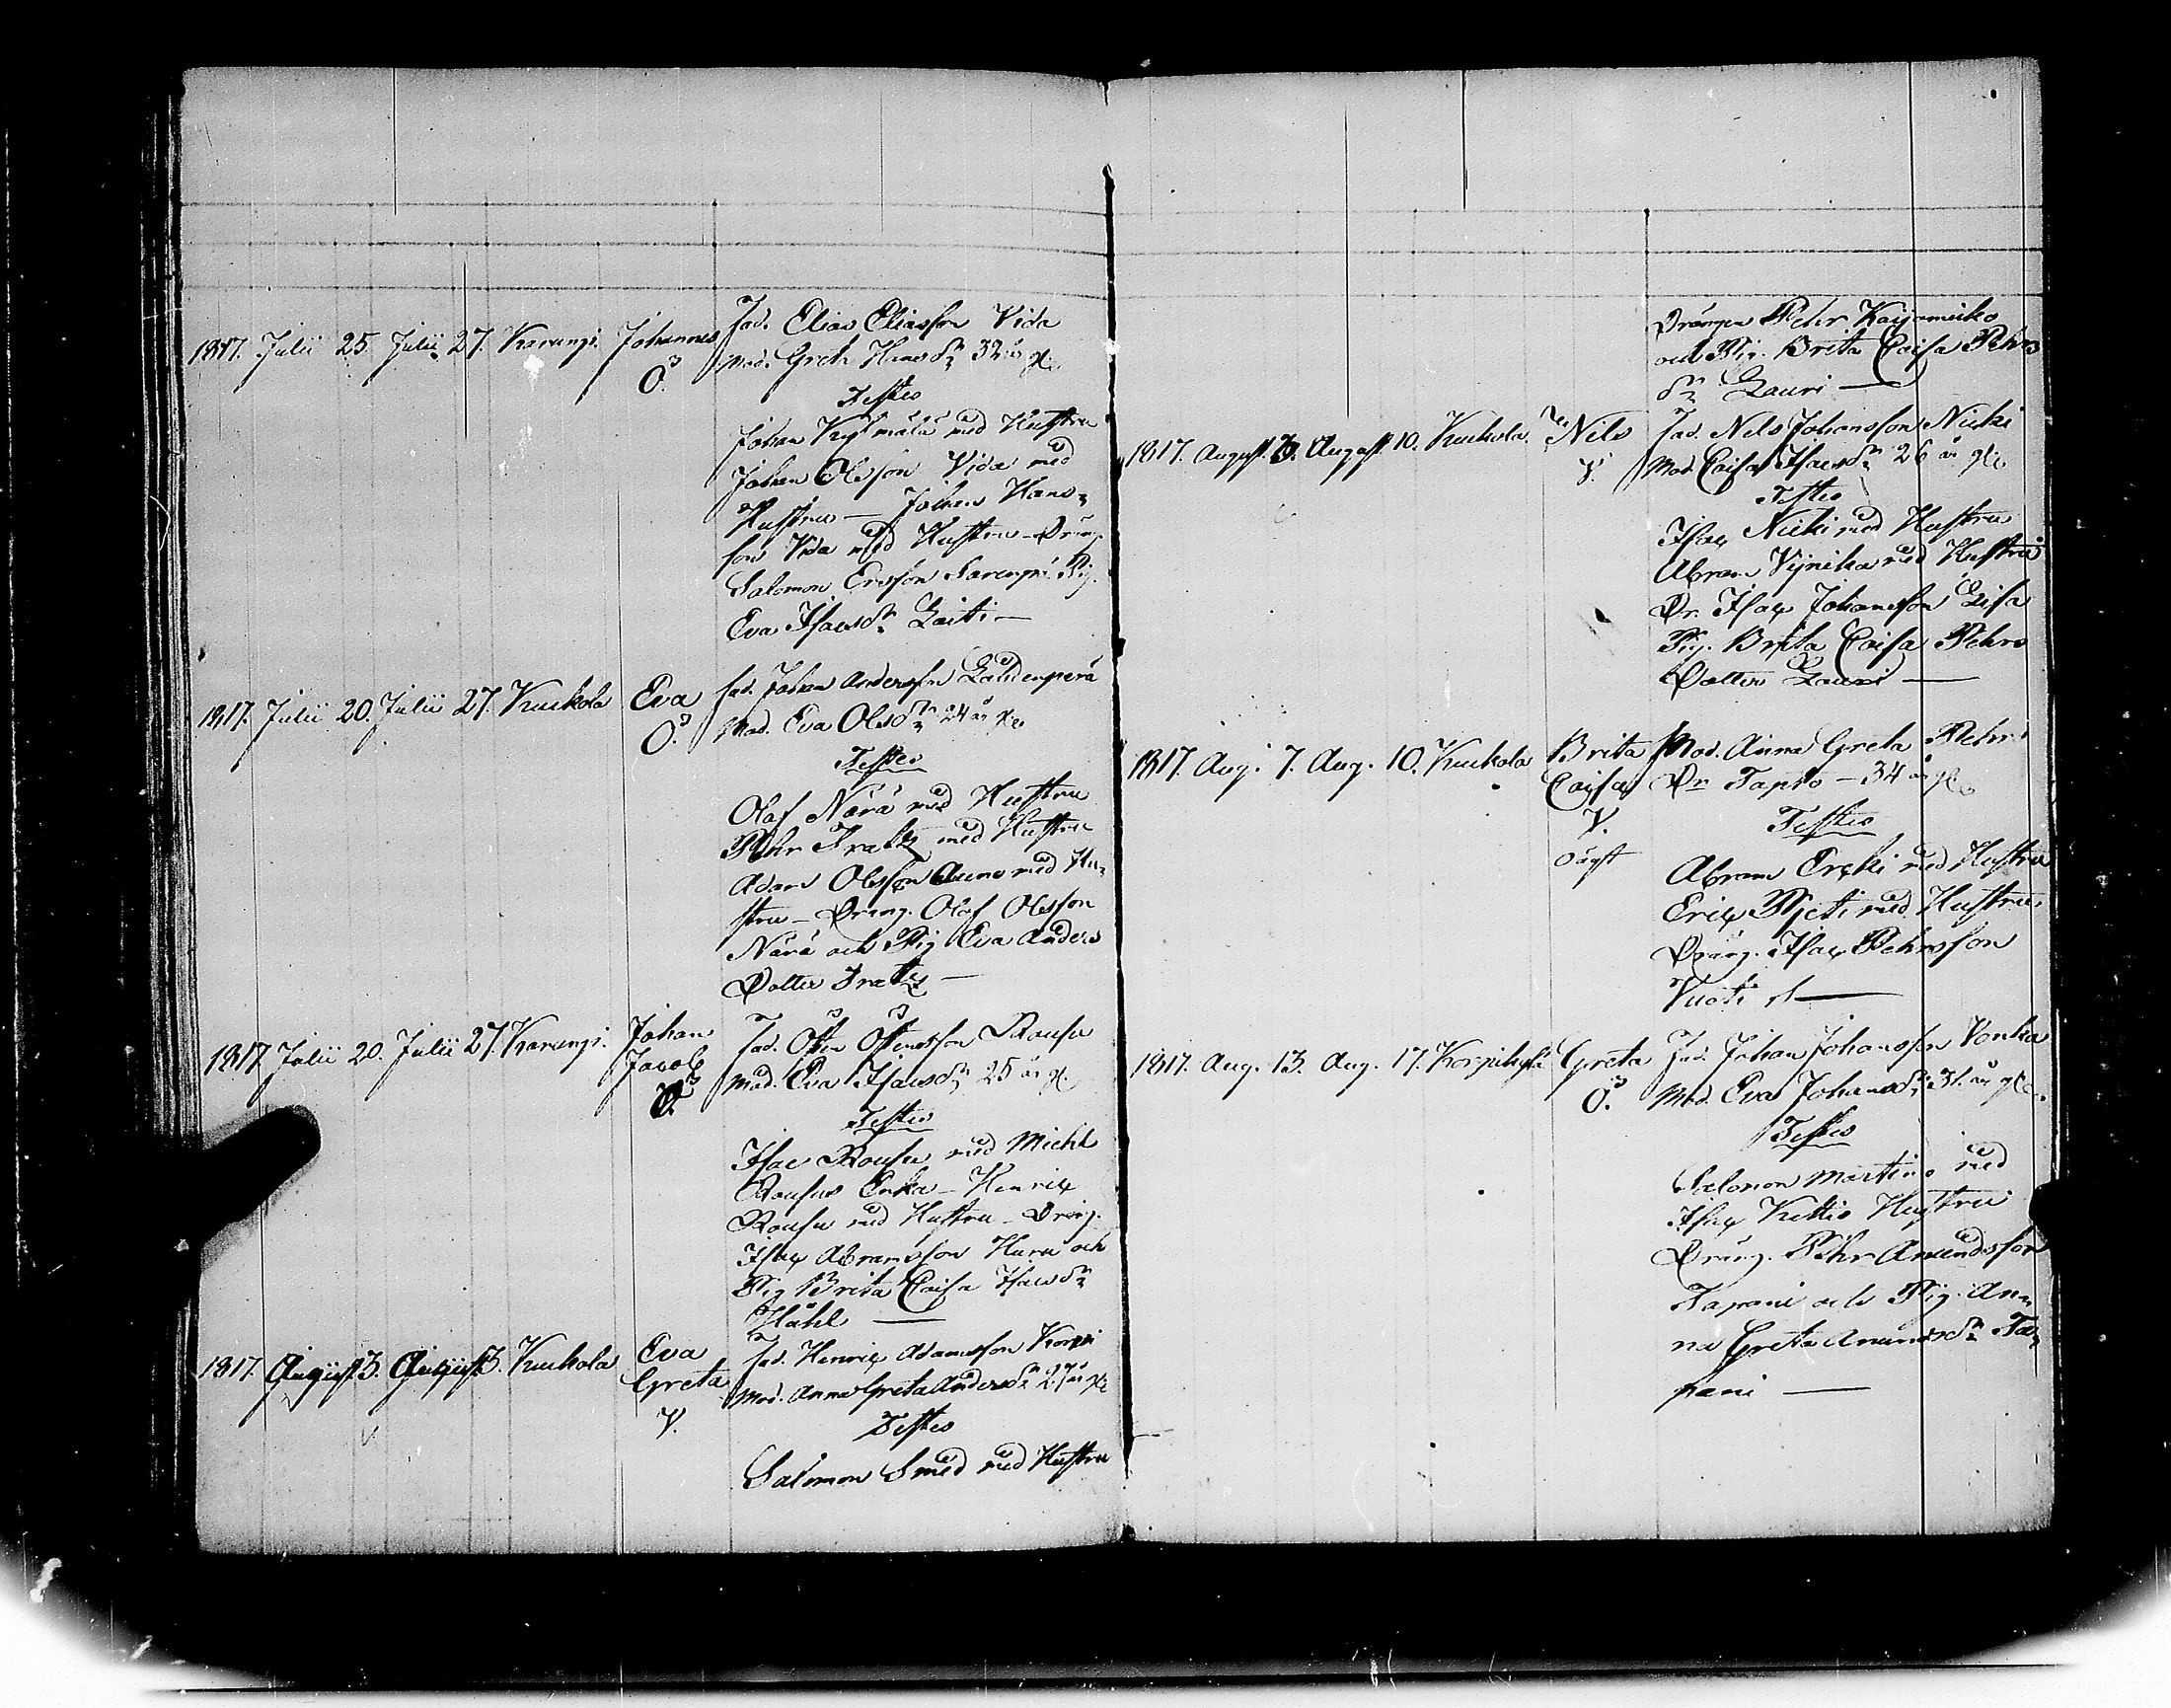 1817. Julii 25. Julii 27. Karungi. Johannes Fad. Elias Eliasson Vida
Ö. Mod. Greta Hans dr 32 år gl.
Testes
Johan Kylmälä med Hustru
Johan Olsson Vida med
Hustru — Johan Hans-
son Vida med Hustru — Dräng
Salomon Ersson Pig.
Eva Isacsdr Laiti —
1817. Julii 20. Julii 27. Kuckola Eva Fad. Johan Andersson
Ö. Mod. Eva Olsdr 24 år gl.
Testes
Olof Närä med Hustru
Pehr med Hustru
Adam Olsson Aune med Hu-
stru — Dräng. Olof Olsson
Närä och Pig Eva Anders
Dotter —
1817 Julii 20. Julii 27. Karungi. Johan Fad. Östen Östensson Rousu
Jacob Mod. Eva Isacsdr 25 år gl.
Ö. Testes
Isac Rousu med Michl
Rousus Enka — Henric
Rousu med Hustru — Dräng.
Isac Abramsson Huru och
Pig Brita Caisa Isacsdr
1817. August 3. August 3. Kuckola Eva Fad. Henric Adamsson Korpi
Greta Mod. Anna Greta Andersdr 27 år gl
V. Testes
Salomon Smed med Hustru
Drängen Pehr
och Pig. Brita Caisa Pehrs
dr Lauri —
1817. August. 3. August. 10. Kuckola. Nils Fad. Nils Johansson Nicki
V. Mod. Caisa Isacsdr 26 år gl.
Testes
Isac Nicki med Hustru
Abram Vijnika med Hustru
Dr. Isac Johansson Lisa
Pig. Brita Caisa Pehrs
Dotter Lauri —
1817. Aug. 7. Aug. 10. Kuckola Brita Mod. Anna Greta Pehrs
Caisa Dr Tapio — 34 år gl.
V. Testes
oägt Abram med Hustru
Eric med Hustru
Dräng. Isac Pehrsson
1817. Aug. 13. Aug. 17. Korpikylä Greta Fad. Johan Johansson Vonka
Ö. Mod. Eva Johansdr 31. år gl.
Testes
Salomon Martins med
Isac Kettis Hustru
Dräng. Pehr Anundsson
Tapani och Pig. An-
na Greta Anundsdr Ta-
pani —